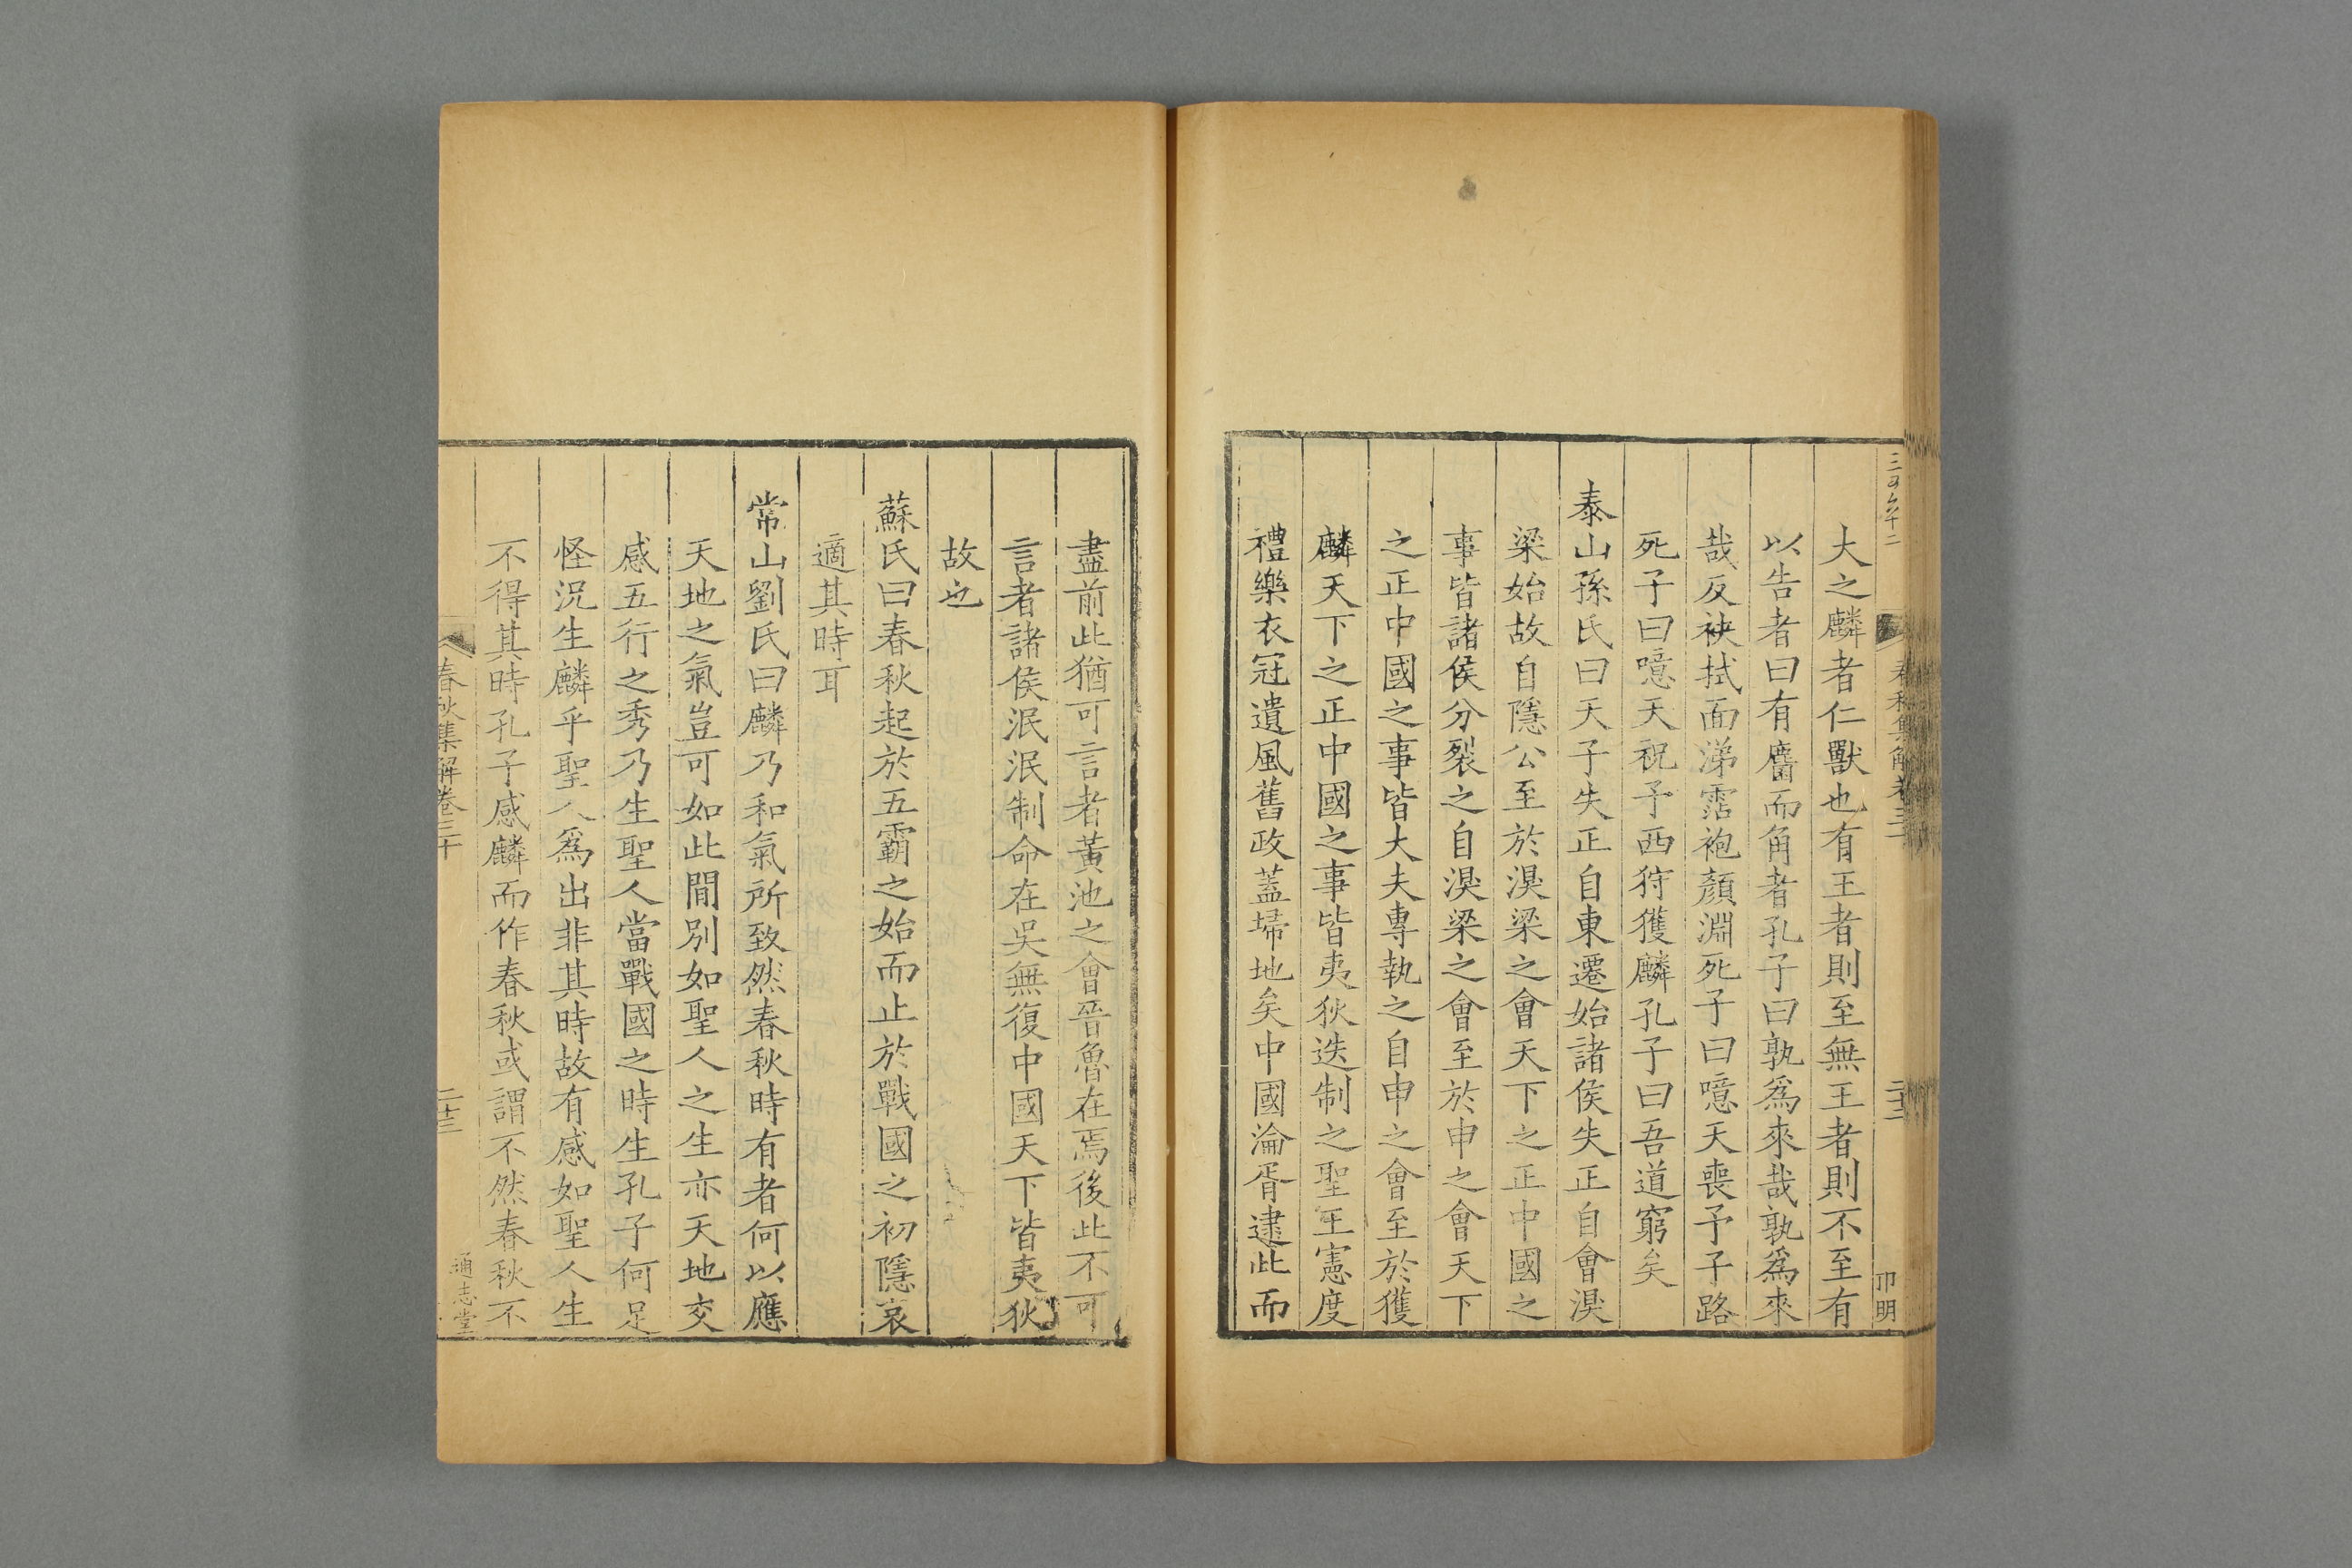 春秋集解卷三
卭明
大之麟者仁獸也有王者則至無王者則不至有
以告者曰有麕而角者孔子曰孰爲來哉孰爲來
哉反袂拭面涕霑袍顏淵死子曰噫天喪予子路
死子曰噫天祝予西狩獲麟孔子曰吾道窮矣
泰山孫氏曰天子失正自東遷始諸侯失正自會湨
梁始故自隱公至於湨梁之會天下之正中國之
事皆諸侯分裂之自湨梁之會至於申之會天下
之正中國之事皆大夫專執之自申之會至於獲
麟天下之正中國之事皆夷狄迭制之聖王憲度
禮樂衣冠遺風舊政蓋埽地矣中國淪胥逮此而
盡前此猶可言者黃池之會晉魯在焉後此不可
言者諸侯泯泯制命在吳無復中國天下皆夷狄
故也
蘇氏曰春秋起於五霸之始而止於戰國之初隱哀
適其時耳
常山劉氏曰麟乃和氣所致然春秋時有者何以應
天地之氣豈可如此閒別如聖人之生亦天地交
感五行之秀乃生聖人當戰國之時生孔子何足
怪況生麟乎聖人爲出非其時故有感如聖人生
不得其時孔子感麟而作春秋或謂不然春秋不
春秋集解卷三十
二十三
通志堂